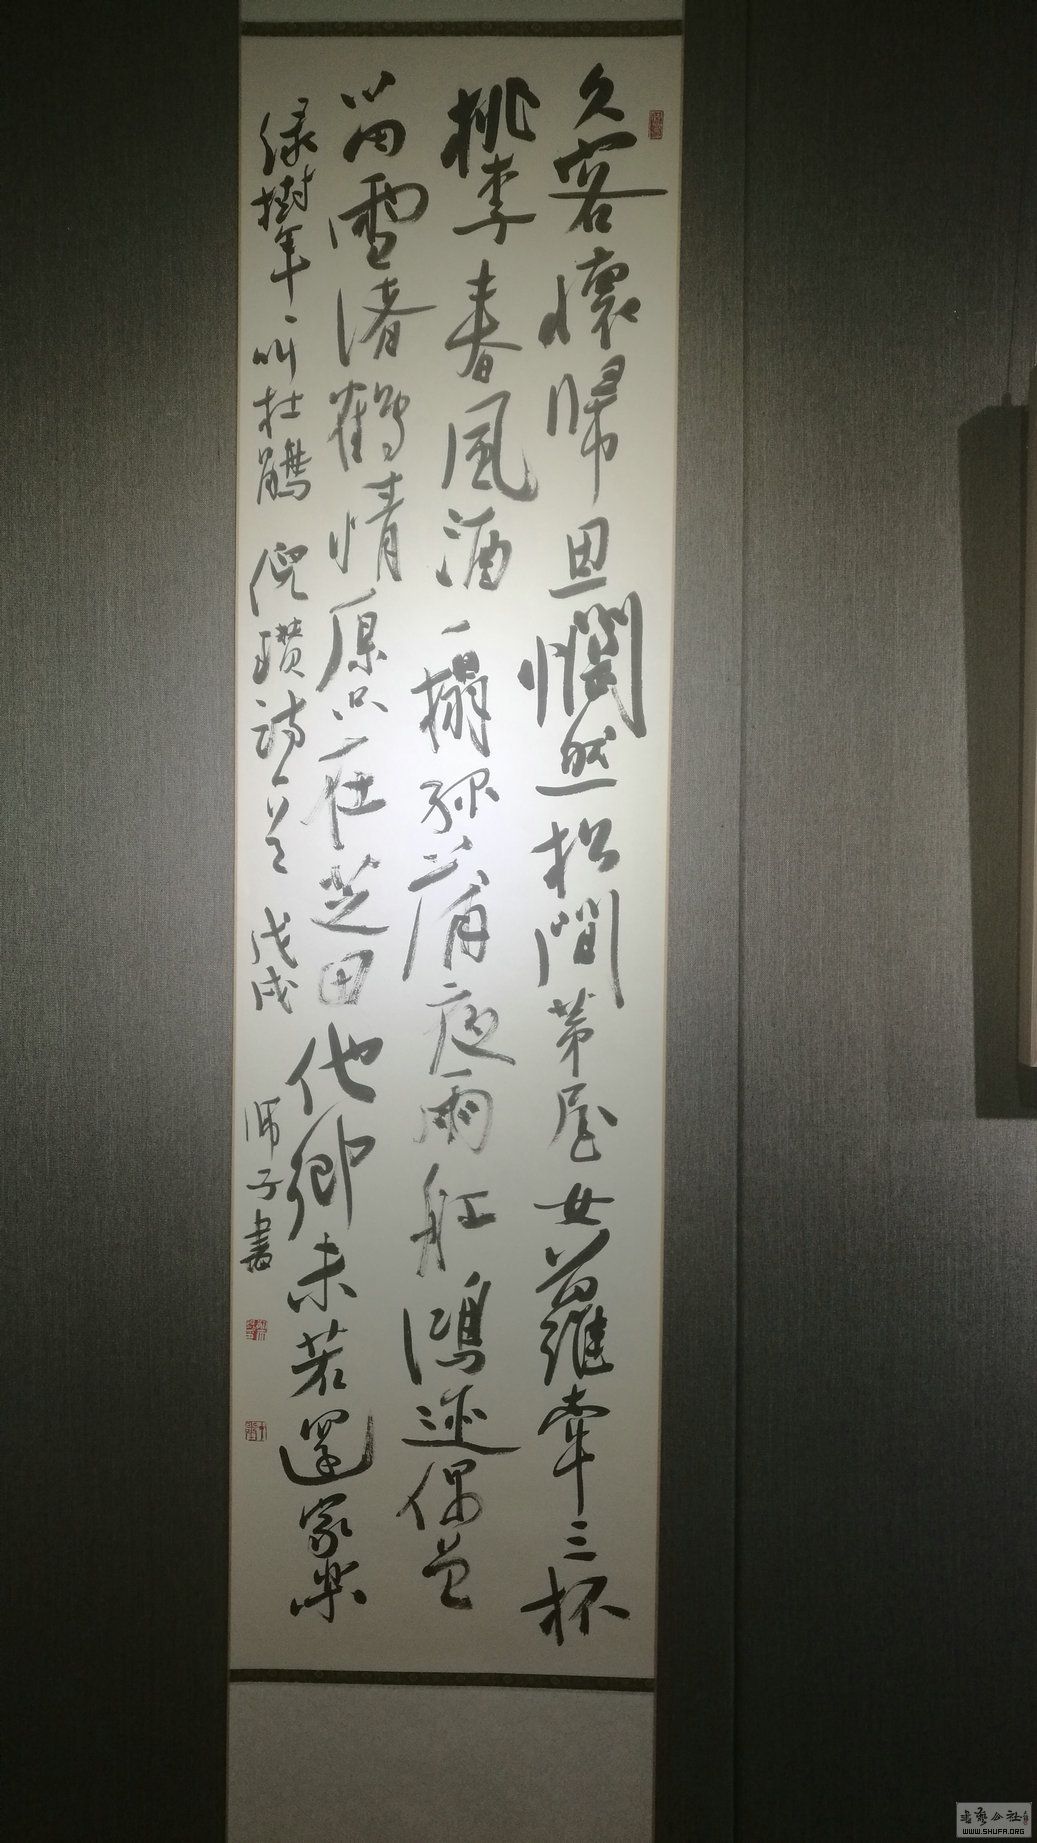 久客懷歸思惘然松間茅屋女蘿牽三杯
桃李春風酒一榻菰蒲夜雨船鴻迹偶曾
留雪渚鶴情原只在芝田他鄉未若還家樂
緑樹年年叫杜鵑 倪瓚詩一首 戊戌 師子書
WWW.SHUFA.ORG